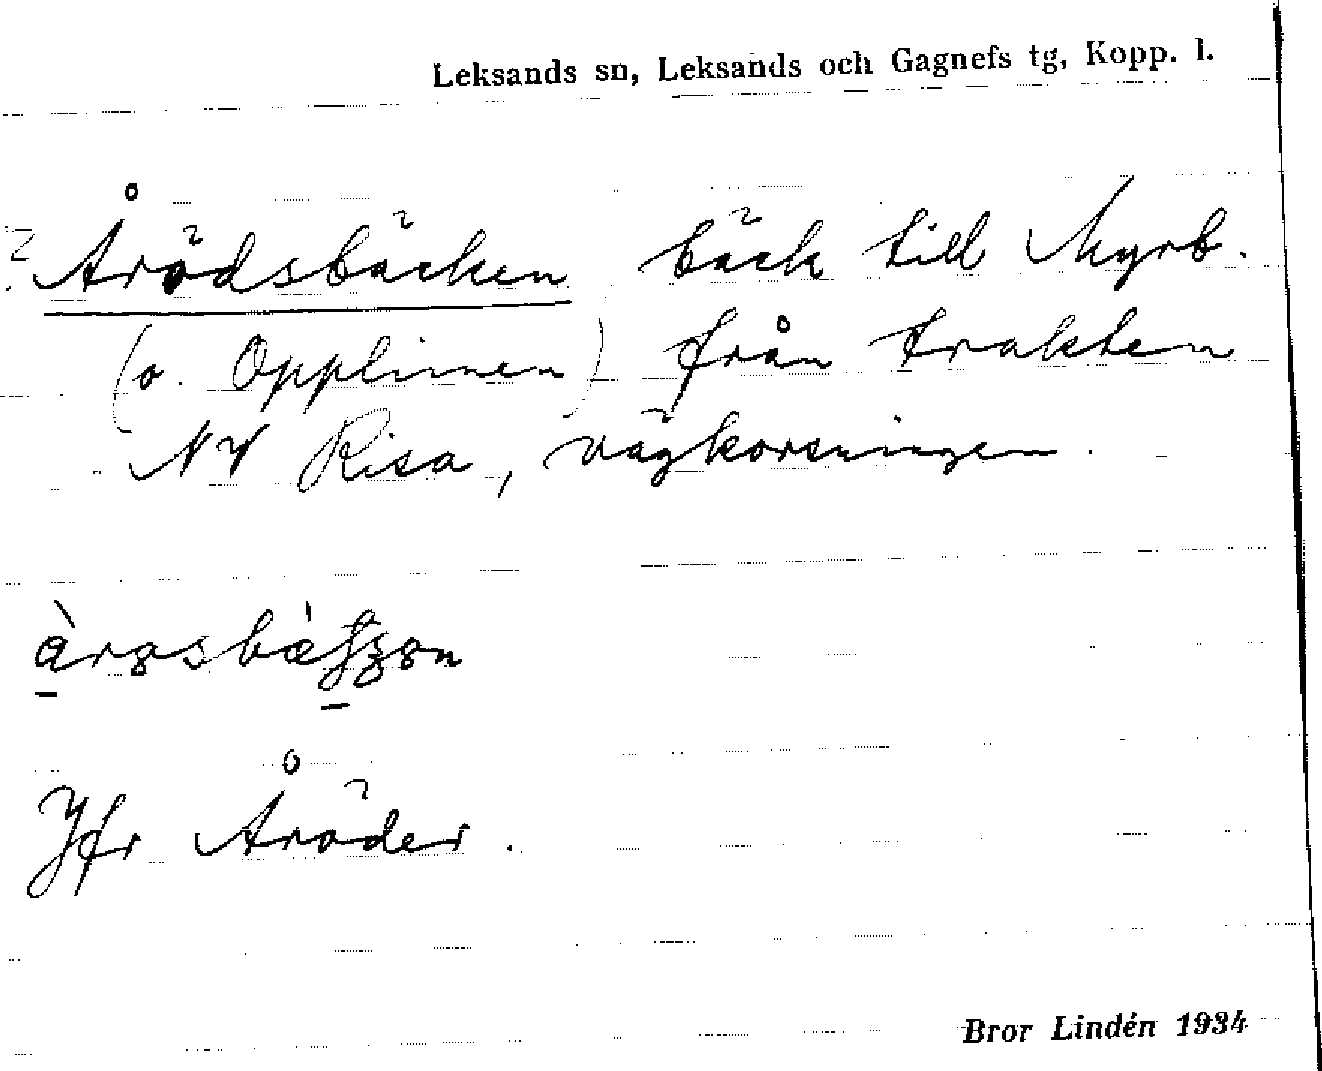 Leksands sn, Leksands och Gagnefs tg, Kopp. l.
? Årödsbäcken bäck till Myrb.
(o. Opplimen) från trakten
NV Risa, vägkorsningen.
Jfr Åröder.
Bror Lindén 1934